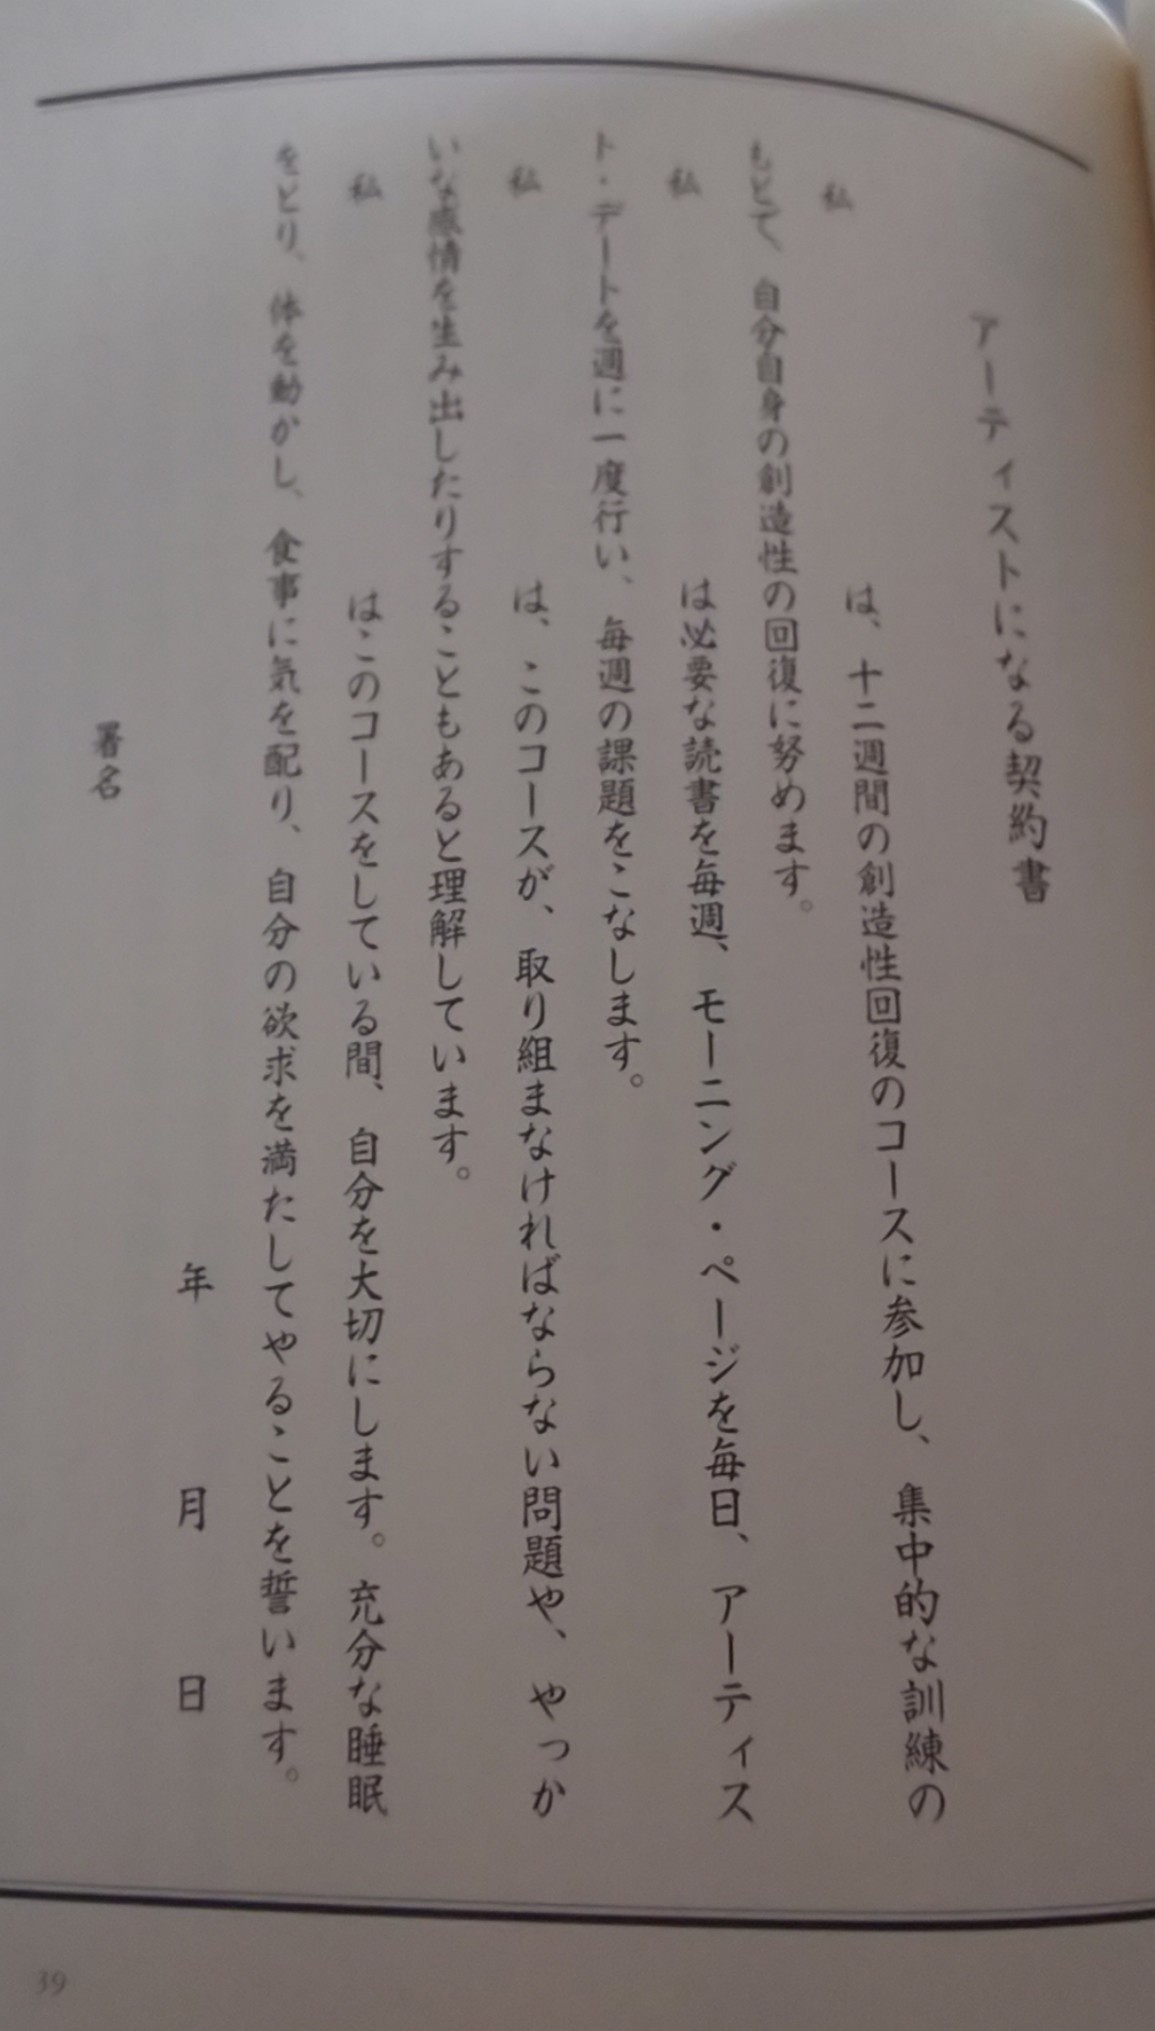 アーティストになる契約書
私　　　　　は、十二週間の創造性回復のコースに参加し、集中的な訓練の
もとで、自分自身の創造性の回復に努めます。
私　　　　　は必要な読書を毎週、モーニング・ページを毎日、アーティス
ト・デートを週に一度行い、毎週の課題をこなします。
私　　　　　は、このコースが、取り組まなければならない問題や、やっか
いな感情を生み出したりすることもあると理解しています。
私　　　　　はこのコースをしている間、自分を大切にします。充分な睡眠
をとり、体を動かし、食事に気を配り、自分の欲求を満たしてやることを誓います。
年　　　月　　　日
署名
39